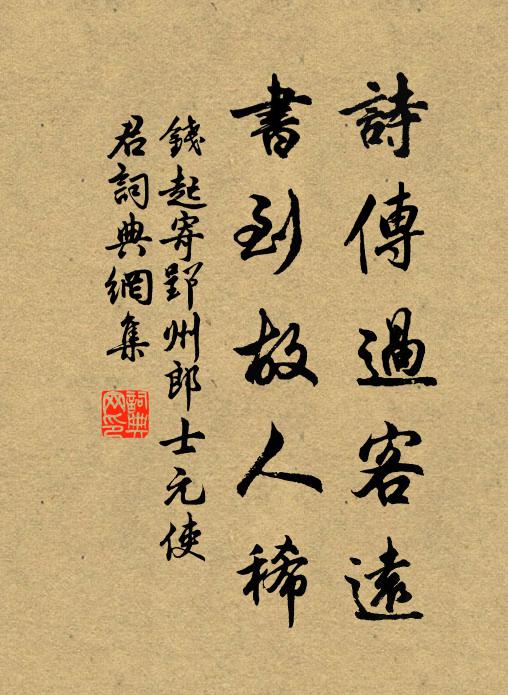 詩傳過客遠
書到故人稀
錢起寄郢州郎士元使
君詞典網集
詞典
网印